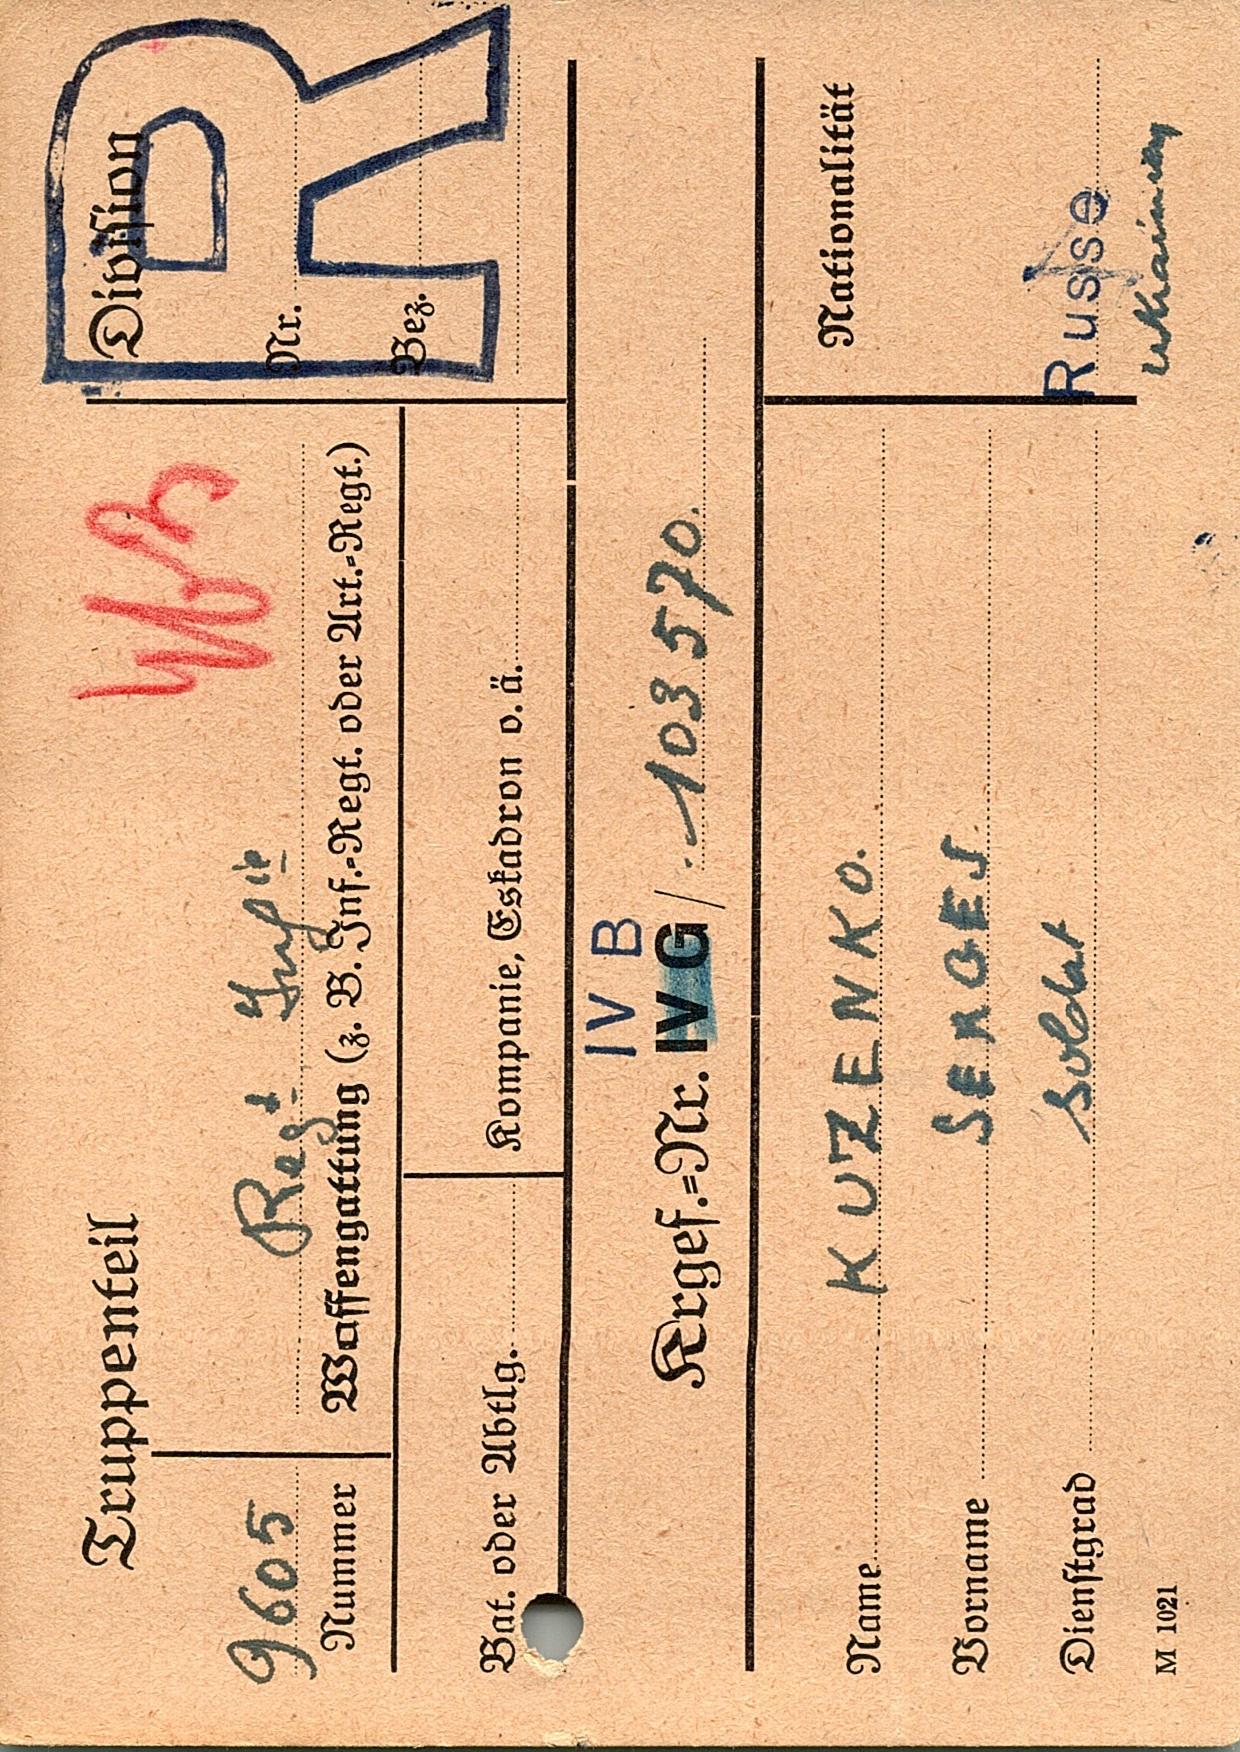 Truppenteil
Division
R
9605
Regt
Nr.
Nummer
Waffengattung (z. B. Inf.-Regt. oder Art.-Regt.)
Bez.
Bat. oder Abtlg.
Kompanie, Eskadron o. ä.
IV B
Krgef.-Nr. IV G / 103570.
Nationalität
Name KUZENKO.
Vorname SERGEJ
Dienstgrad Soldat
Russe
M 1021